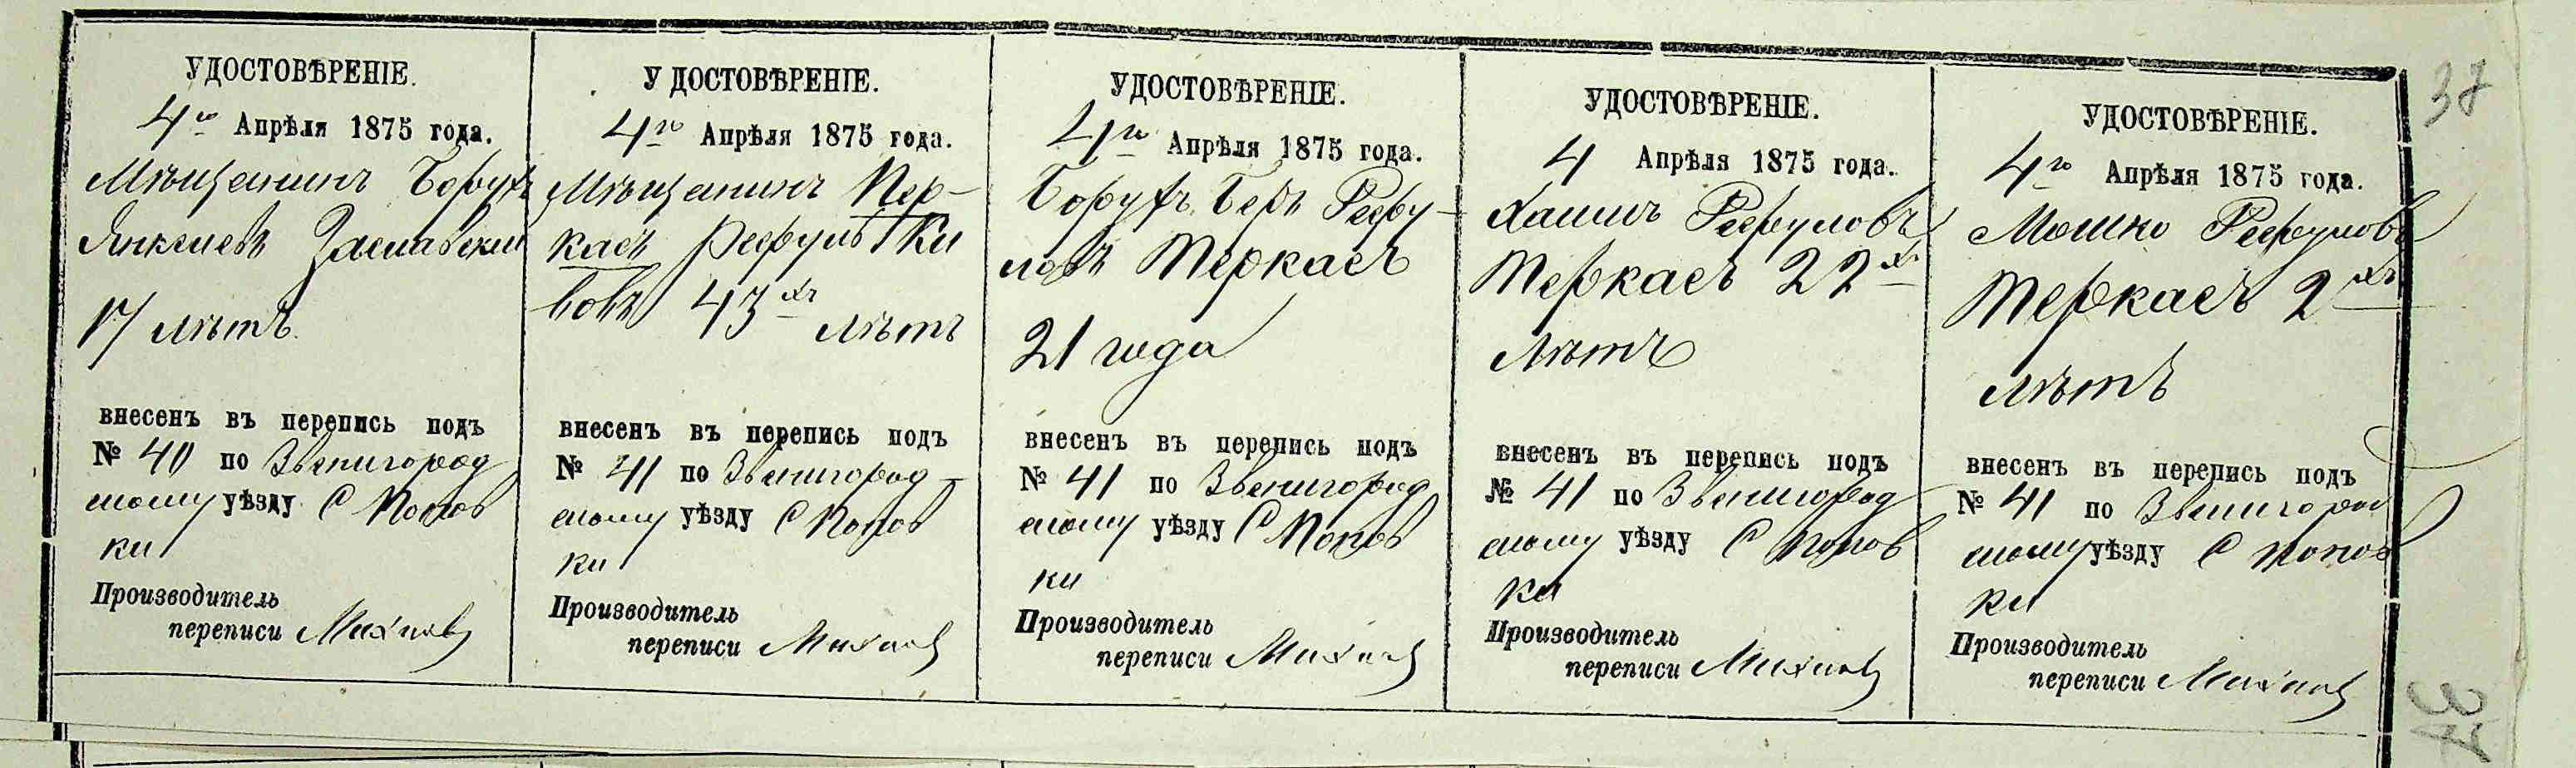 УДОСТОВѢРЕНІЕ.
4го Апрѣля 1875 года.
Мѣщанинъ Борухъ
Янкелевъ Заславскій
17 лѣтъ.
внесенъ въ перепись подъ
№ 40 по Звенигород
скому уѣзду С Попов
ки
Производитель
переписи
УДОСТОВѢРЕНІЕ.
4го Апрѣля 1875 года.
Мѣщанинъ Чер-
касъ Ки
вовъ 43хъ лѣтъ
внесенъ въ перепись подъ
№ 41 по Звенигород-
скому уѣзду С Попов
ки
Производитель
переписи
УДОСТОВѢРЕНІЕ.
4го Апрѣля 1875 года.
Борухъ Беръ Рефу-
ловъ Черкасъ
21 года
внесенъ въ перепись подъ
№ 41 по Звенигород
скому уѣзду С Попов
ки
Производитель
переписи
УДОСТОВѢРЕНІЕ.
4 Апрѣля 1875 года.
Хаимъ Рефуловъ
Черкасъ 22хъ
лѣтъ
внесенъ въ перепись подъ
№ 41 по Звенигород
скому уѣзду С Попов
ки
Производитель
переписи
УДОСТОВѢРЕНІЕ.
4го Апрѣля 1875 года.
Мошко Рефуловъ
Черкасъ 2хъ
лѣтъ
внесенъ въ перепись подъ
№ 41 по Звенигород
скому уѣзду С Попов
ки
Производитель
переписи
37
37